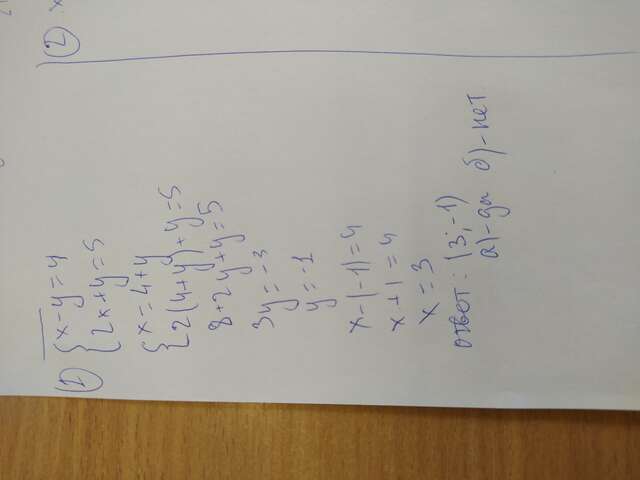 1) { x-y=4
2x+y=5
{ x=4+y
2(4+y)+y=5
8+2y+y=5
3y=-3
y=-1
x-(-1)=4
x+1=4
x=3
ответ: (3;-1)
а)-да б)-нет
2) x